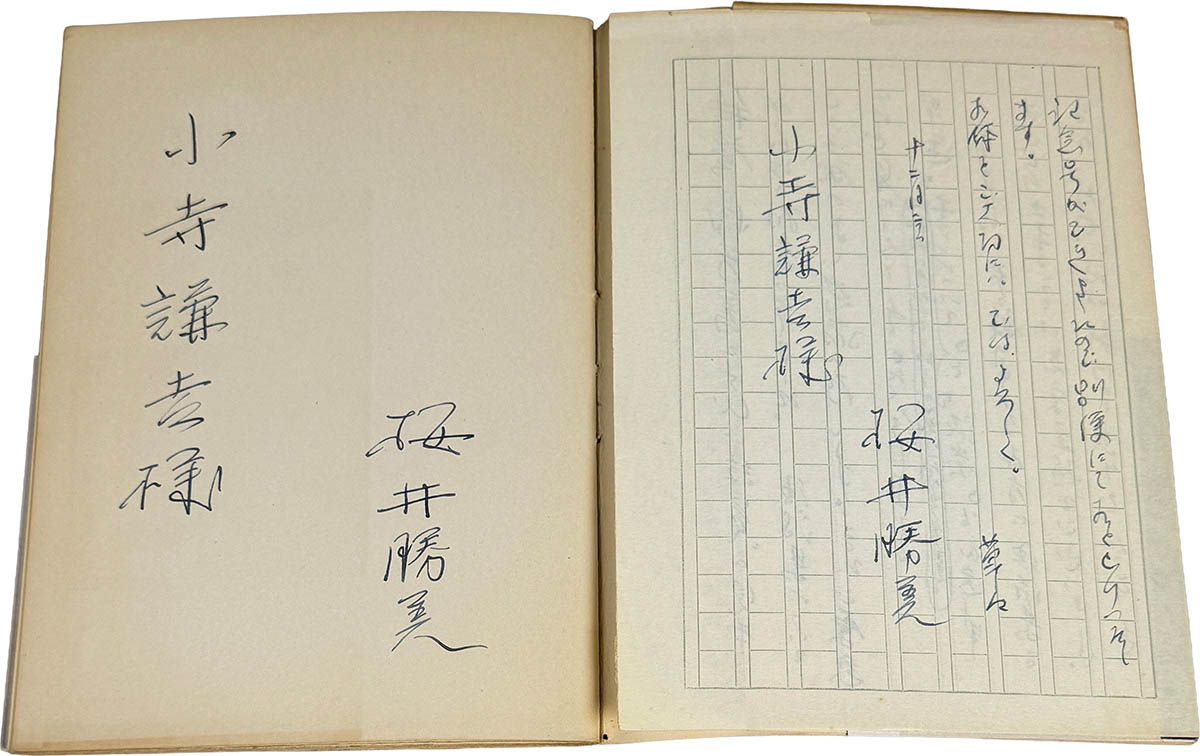 記念号ができましたので別便にておとどけいたし
ます。
お体を大切に。では、よろしく。
草々
十二月
桜井勝美
小寺謙吉様
桜井勝美
小寺謙吉様